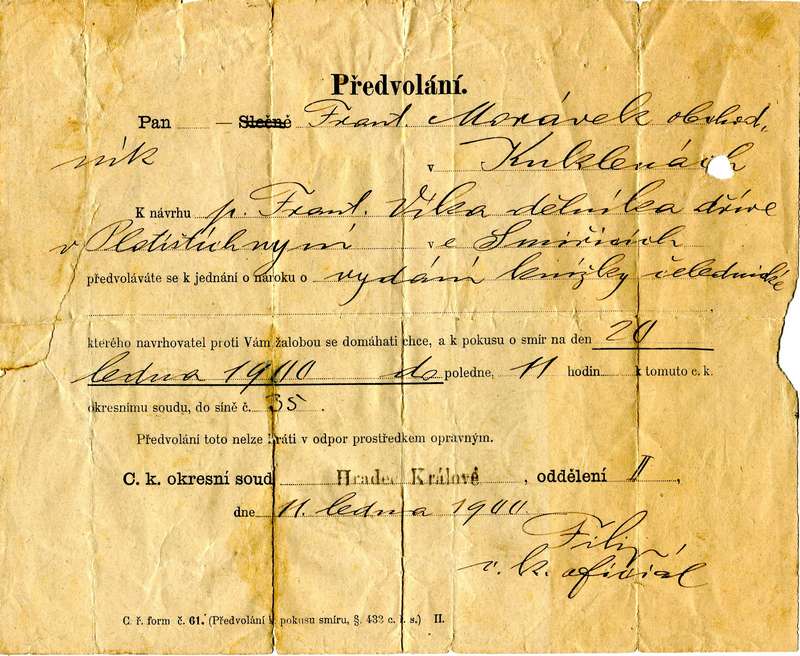 Předvolání.
Pan — Slečně Frant. Morávek obchod-
ník v Kuklenách
K návrhu p. Frant. Vlka dělníka dříve
v Plotištích nyní ve Smiřicích
předvoláváte se k jednání o nároku o vydání knížky čelednické
kterého navrhovatel proti Vám žalobou se domáhati chce, a k pokusu o smír na den 20
ledna 1900 do poledne, 11 hodin k tomuto c. k.
okresnímu soudu, do síně č. 35.
Předvolání toto nelze bráti v odpor prostředkem opravným.
C. k. okresní soud Hradec Králové, oddělení II,
dne 11. ledna 1900
c. k. oficiál
C. ř. form č. 61. (Předvolání k pokusu smíru, §. 432 c. ř. s.) II.